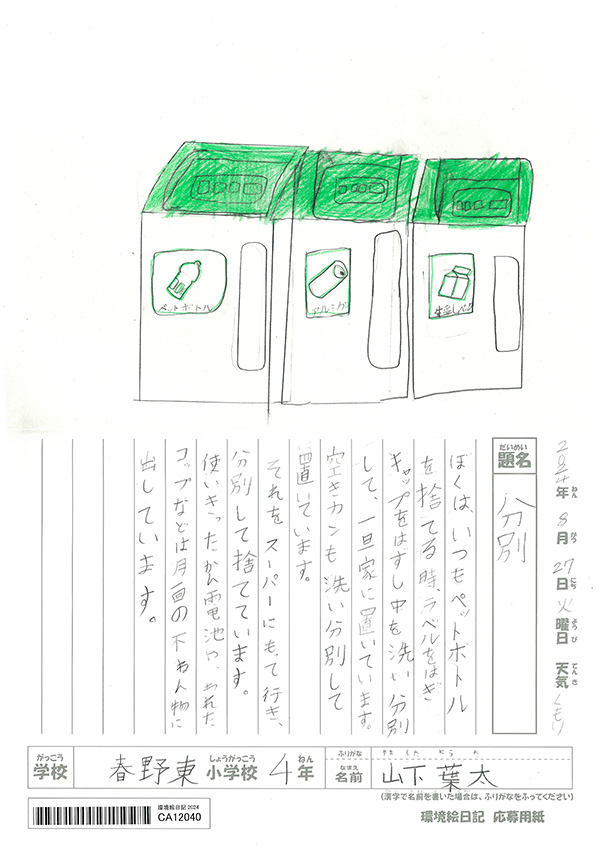 ペットボトル
アルミカン
牛乳パック
2024年 8月 27日 火曜日 天気 くもり
ねん がつ にち ようび てんき
だいめい
題名
分別
ぼくは、いつもペットボトル
を捨てる時、ラベルをはぎ
キャップをはずし中を洗い分別
して、一旦家に置いています。
空きカンも洗い分別して
置いています。
それをスーパーにもって行き、
分別して捨てています。
使いきったかん電池や、われた
コップなどは月一回の不ねん物に
出しています。
がっこう
学校
春野東
しょうがっこう
小学校
4
ねん
年
ふりがな
なまえ
名前
山下 葉太
(漢字で名前を書いた場合は、ふりがなをふってください)
環境絵日記 応募用紙
環境絵日記 2024
CA12040